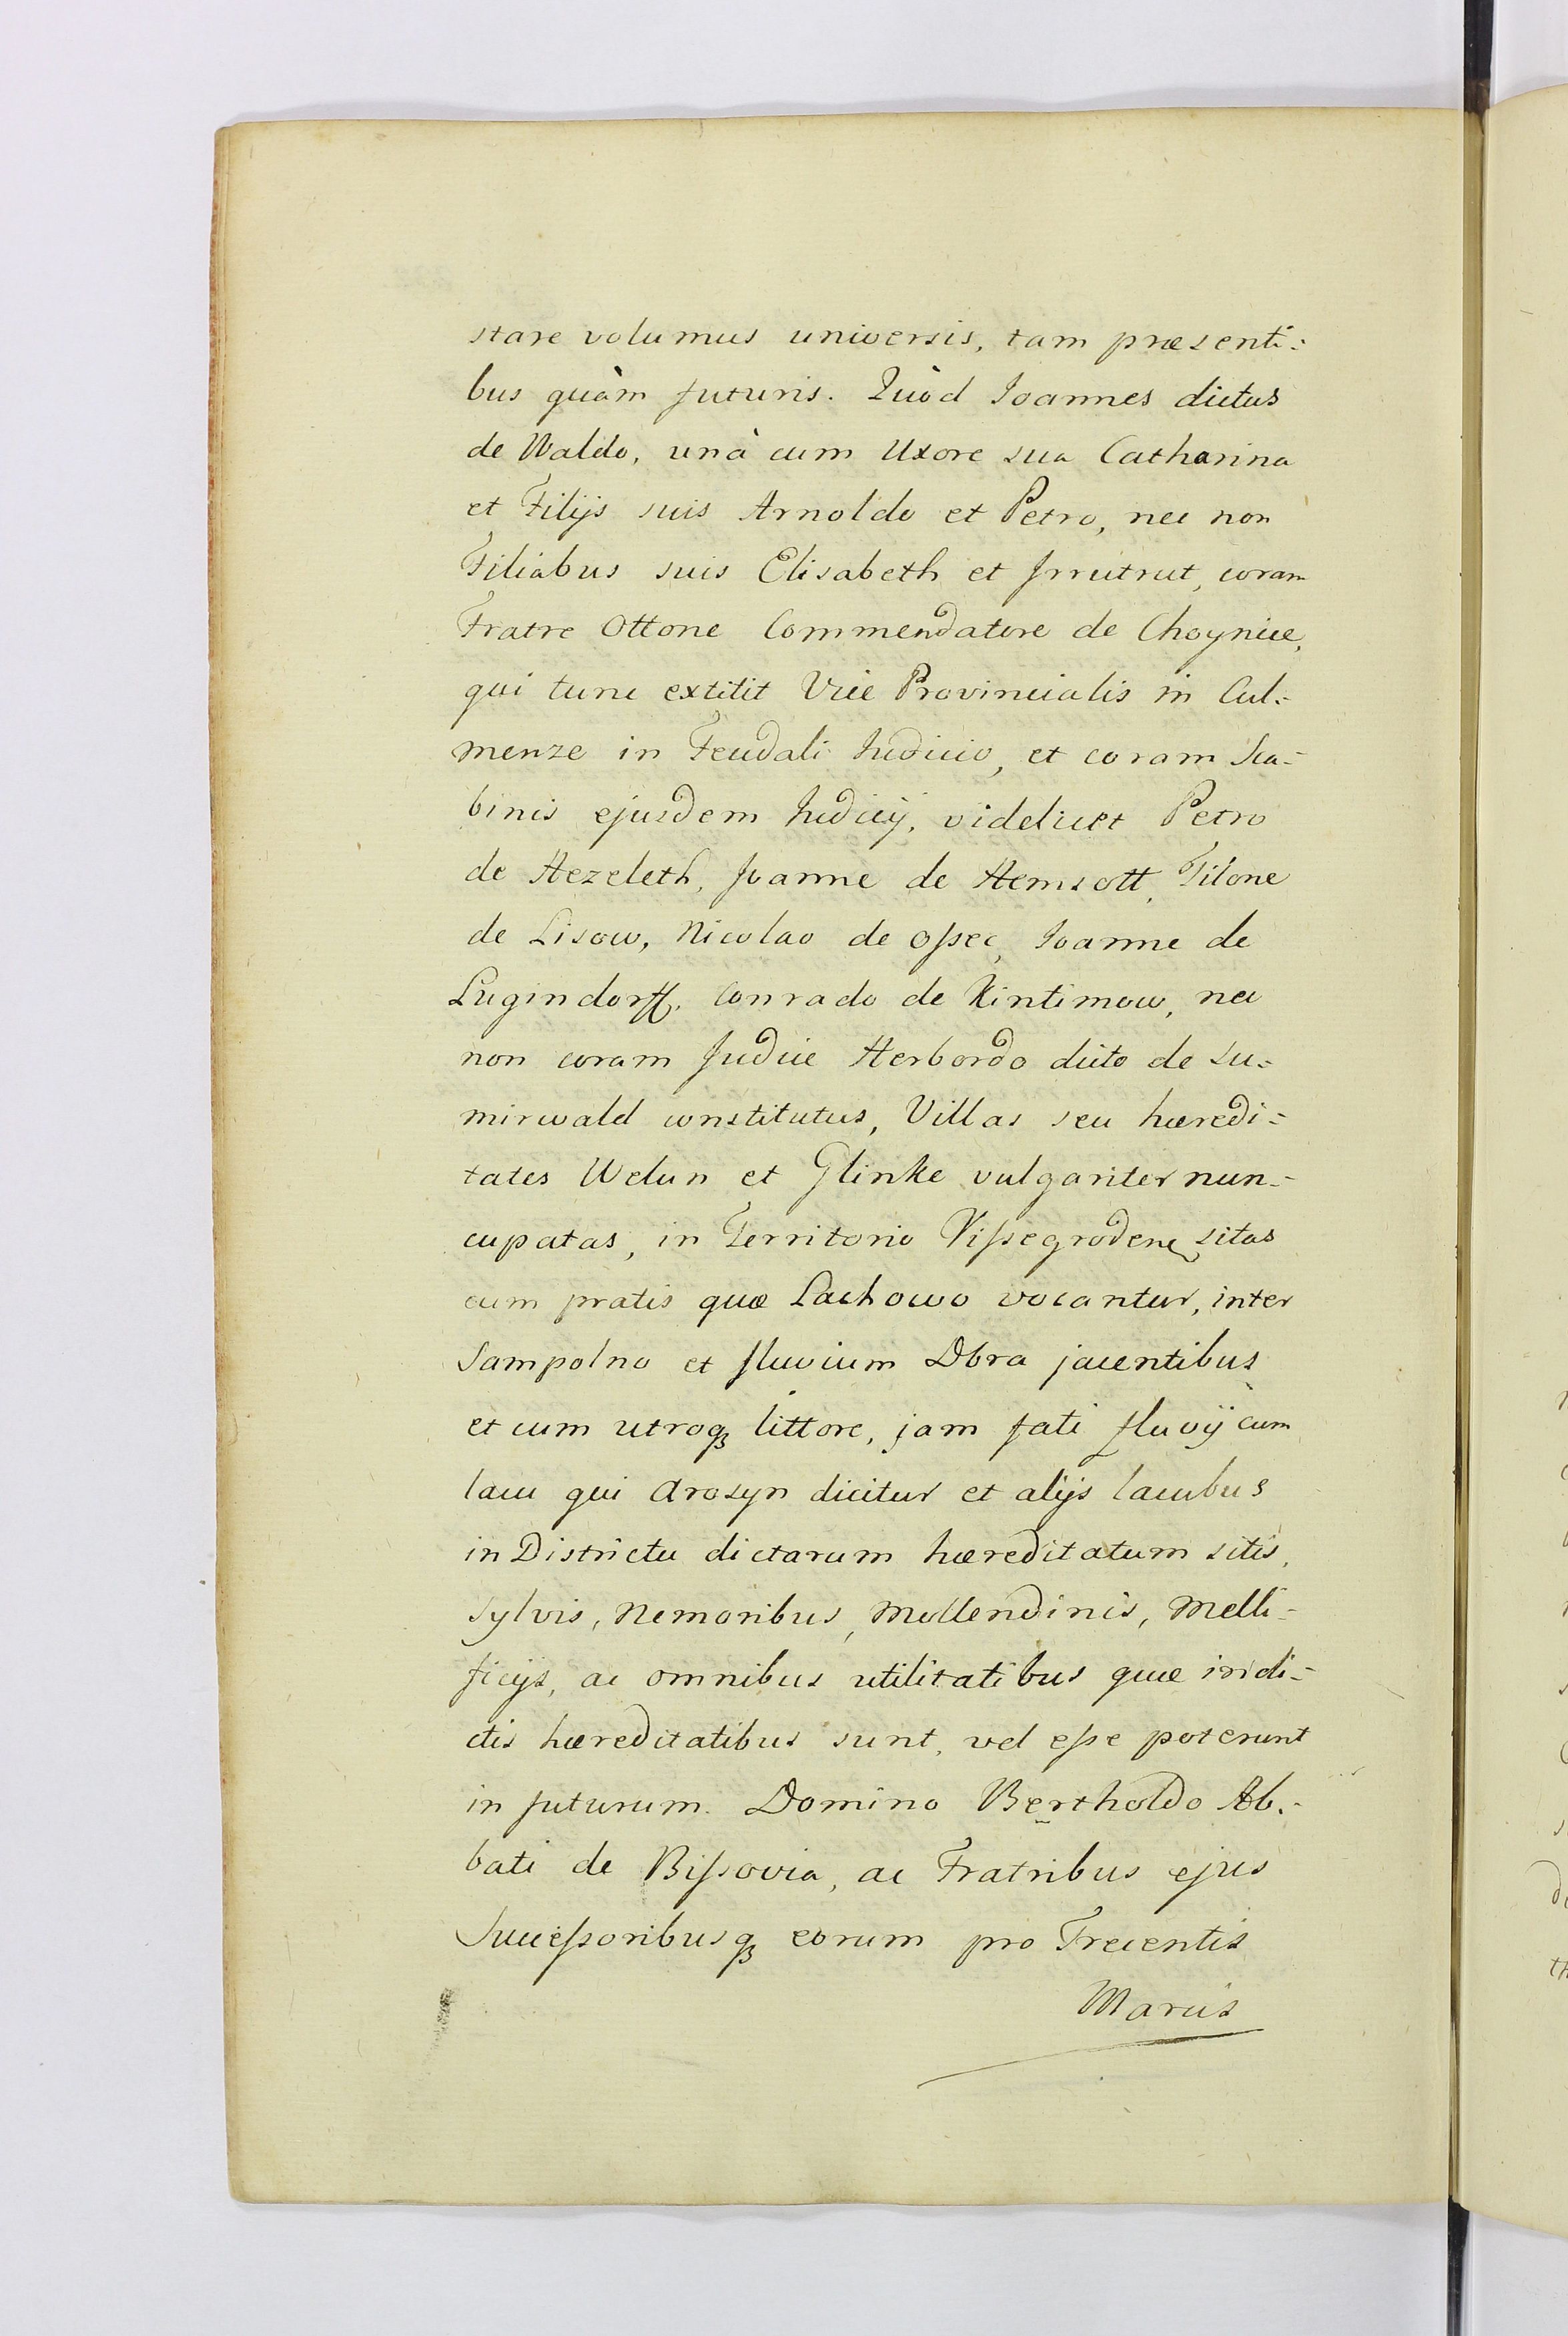 stare volumus universis, tam præsenti=
bus quàm futuris. Quòd Joannes dictus
de Waldo, unà cum Uxore sua Catharina
et Filijs suis Arnoldo et Petro, nec non
Filiabus suis Elisabeth et Jrrutrut, coram
Fratre Ottone Commendatore de Choynice,
qui tunc extitit Vice Provincialis in Cul=
menze in Feudali Judicio, et coram Sca=
binis ejusdem Judicij, videlicet Petro
de Hezeleth, Joanne de Hemsott, Tilone
de Lisow, Nicolao de Ossec, Joanne de
Lugindorff, Conrado de Kintimow, nec
non coram Judice Herbordo dicto de Su=
mirwald constitutus, Villas seu hæredi=
tates Welun et Glinke vulgariter nun=
cupatas, in Territorio Vissegrodene sitas
cum pratis quæ Lachowo vocantur, inter
Sampolno et fluvium Dbra jacentibus
et cum utroq; littore, jam fati fluvij cum
lacu qui Arosyn dicitur et alijs lacubus
in Districtu dictarum hæreditatum sitis,
Sylvis, Nemoribus, Mollendinis, Melli=
ficijs, ac omnibus utilitatibus quæ in di=
ctis hæreditatibus sunt, vel esse poterunt
in futurum. Domino Bertholdo Ab=
bati de Bissovia, ac Fratribus ejus
Successoribusq; eorum pro Trecentis
Marcis